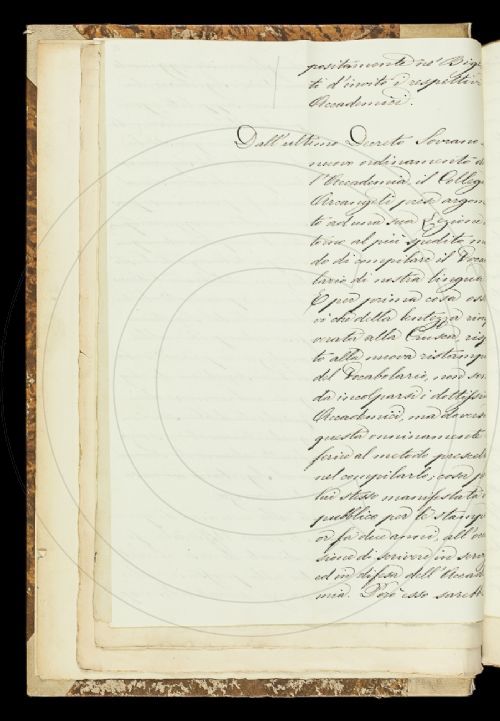 positamente ne' Big
ti d'invito i respettiv
Accademici.
Dall'ultimo Decreto Sovrano
nuovo ordinamento d
l'Accademia, il Colleg
Arcangeli prese argom
to ad una sua Lezione
torno al più spedito mo
do di compilare il Voca
lario di nostra lingua
E per prima cosa oss
vò che della lentezza rim
verata alla Crusca, risp
to alla nuova ristampa
del Vocabolario, non son
da incolparsi i dottissi
Accademici, ma doversi
questa onninamente
ferire al metodo prescel
nel compilarlo; cosa
lui stesso manifestata
pubblico per le stampe
or fa due anni, all'oc
sione di scrivere in serv
ed in difesa dell'Accad
mia. Però esso sareb